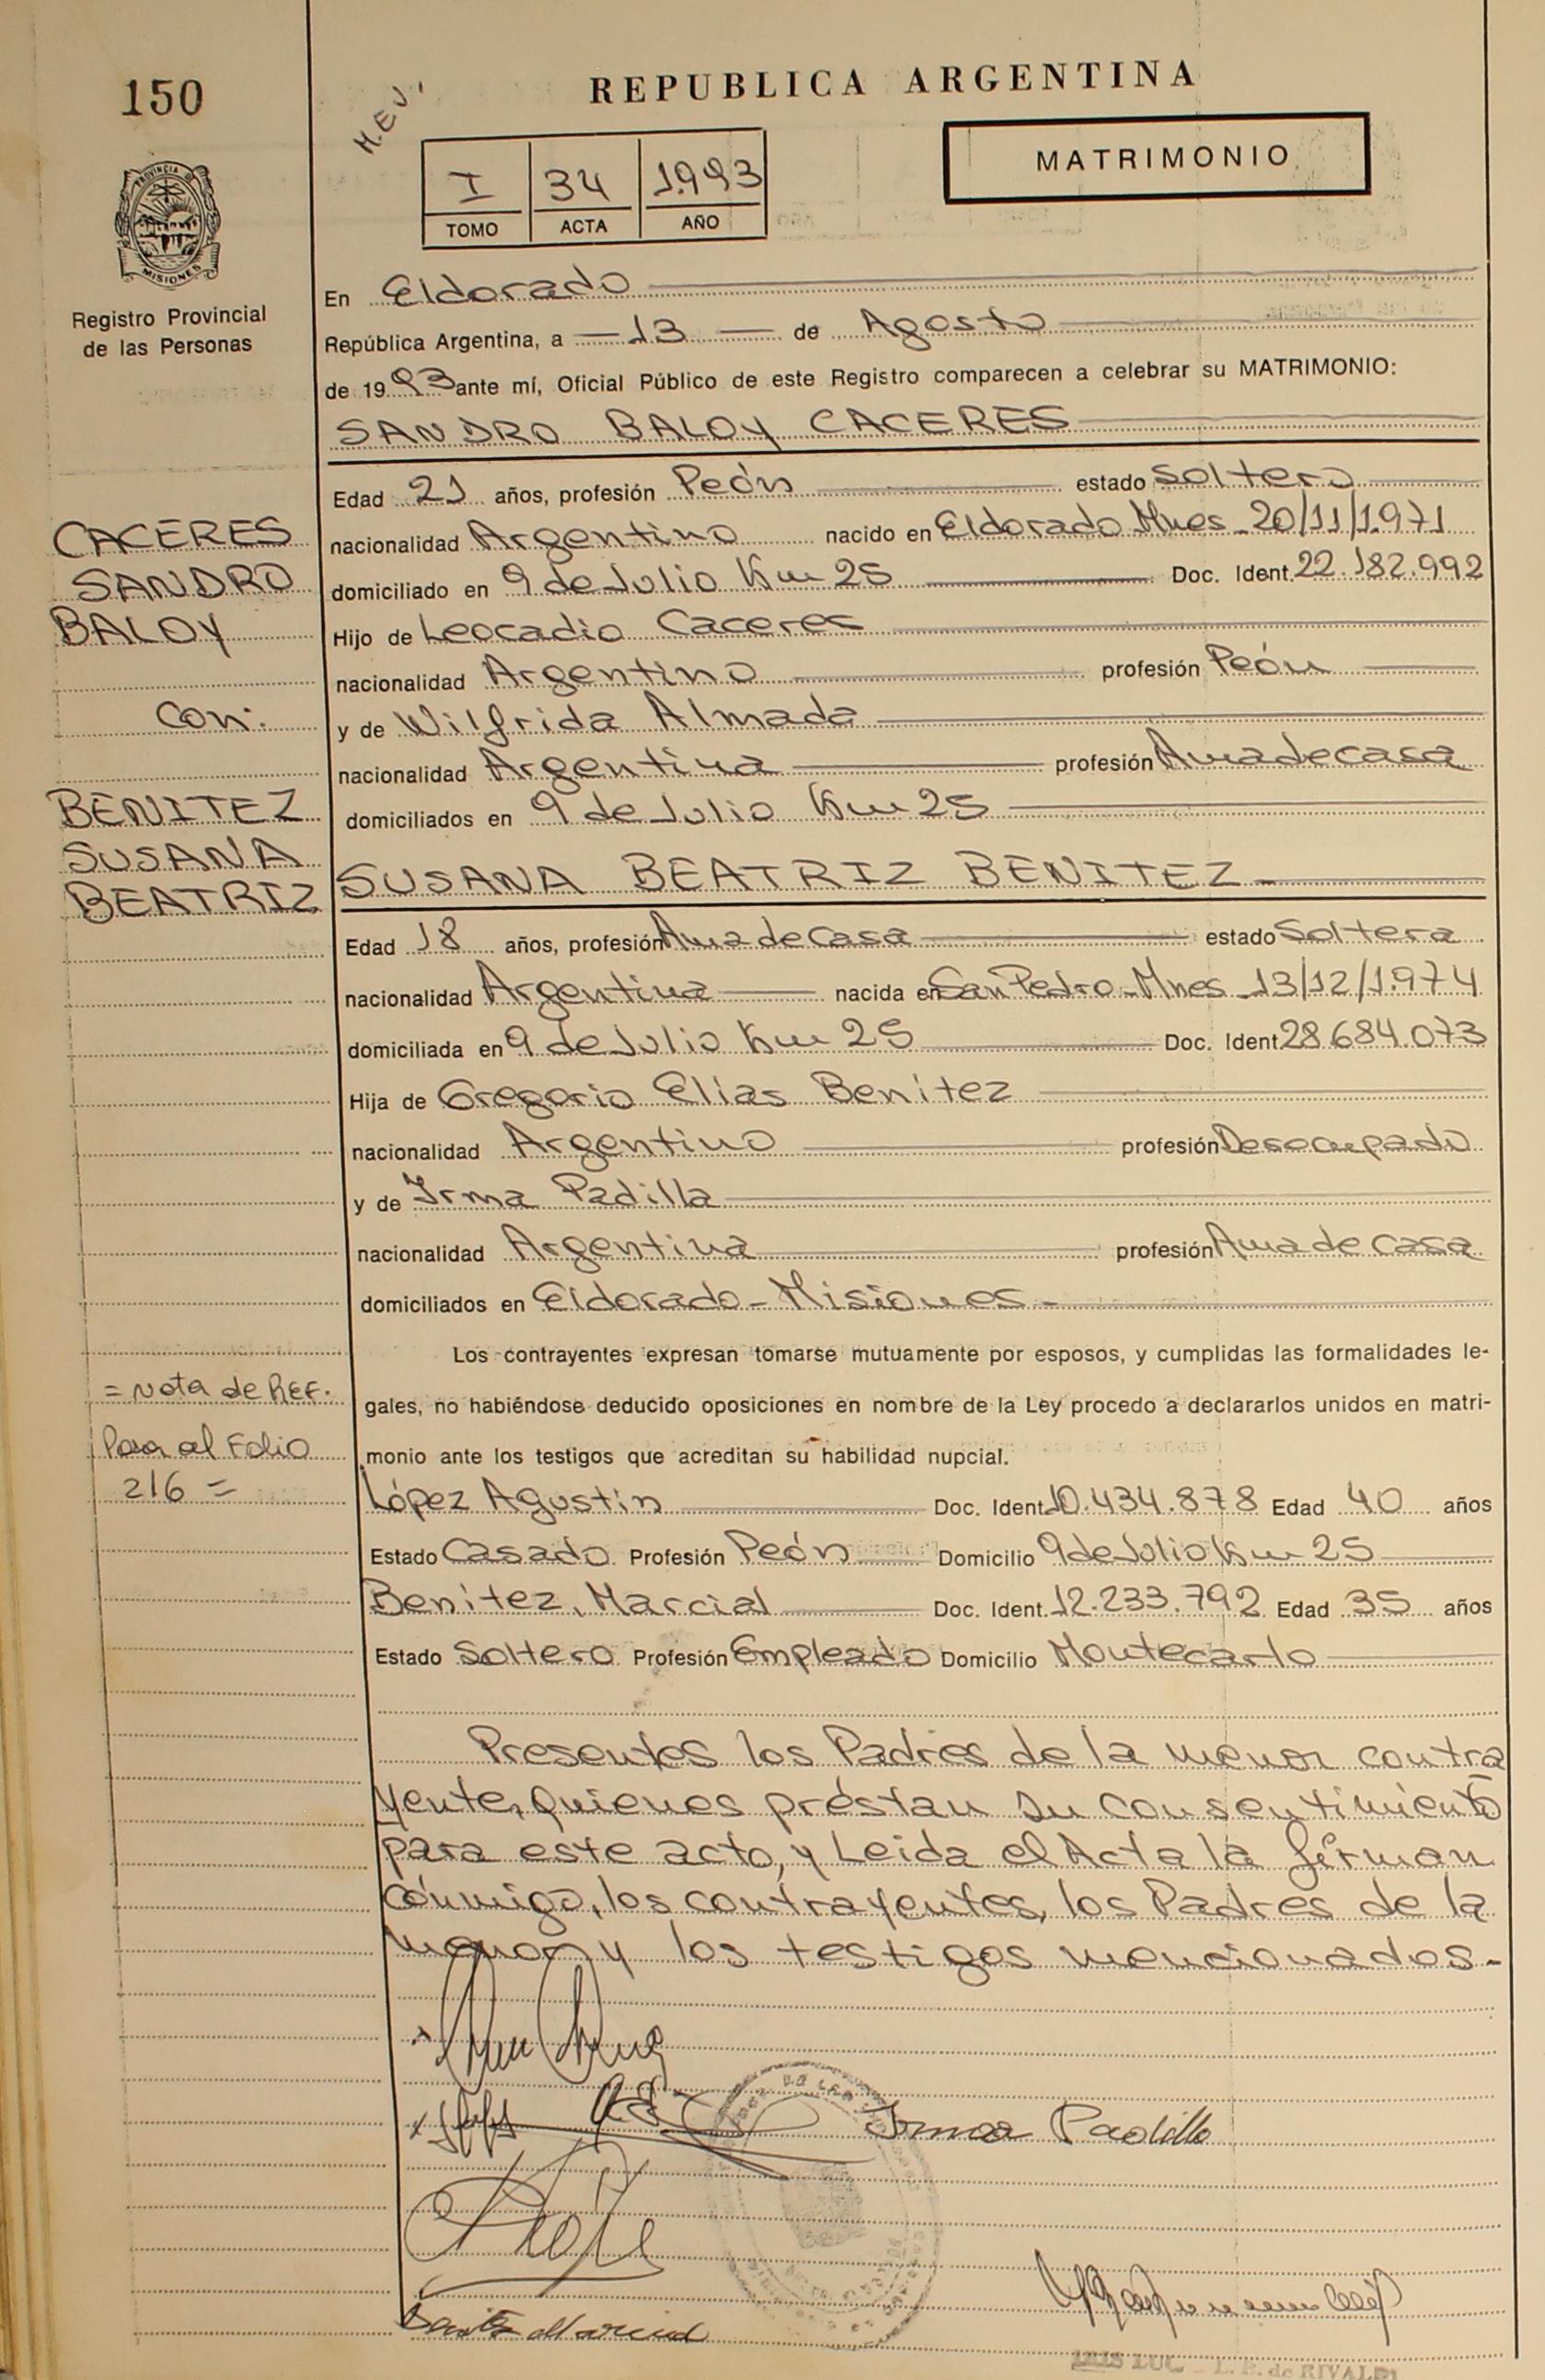 150
M.E.J.
REPUBLICA ARGENTINA
I 34 1.993
TOMO ACTA AÑO
MATRIMONIO
PROVINCIA DE
MISIONES
Registro Provincial
de las Personas
En Eldorado
República Argentina, a 13 de Agosto
de 1993 ante mí, Oficial Público de este Registro comparecen a celebrar su MATRIMONIO:
SANDRO BALOY CACERES
Edad 21 años, profesión Peón estado Soltero
nacionalidad Argentino nacido en Eldorado Mnes - 20/11/1.971
domiciliado en 9 de Julio Km 25 Doc. Ident. 22.182.992
Hijo de Leocadio Caceres
nacionalidad Argentino profesión Peón
y de Wilfrida Almada
nacionalidad Argentina profesión Ama de casa
domiciliados en 9 de Julio Km 25
CACERES
SANDRO
BALOY
con:
BENITEZ
SUSANA
BEATRIZ
SUSANA BEATRIZ BENITEZ-
Edad 18 años, profesión Ama de Casa estado Soltera
nacionalidad Argentina nacida en San Pedro - Mnes - 13/12/1.974
domiciliada en 9 de Julio Km 25 Doc. Ident. 28.684.073
Hija de Gregorio Elias Benitez
nacionalidad Argentino profesión Desocupado
y de Irma Padilla
nacionalidad Argentina profesión Ama de casa
domiciliados en Eldorado - Misiones -
Los contrayentes expresan tomarse mutuamente por esposos, y cumplidas las formalidades le-
gales, no habiéndose deducido oposiciones en nombre de la Ley procedo a declararlos unidos en matri-
monio ante los testigos que acreditan su habilidad nupcial.
= Nota de REF.
Pasa al Folio
216 =
López Agustín Doc. Ident. 10.434.878 Edad 40 años
Estado Casado Profesión Peón Domicilio 9 de Julio Km 25
Benitez, Marcial Doc. Ident. 12.233.792 Edad 35 años
Estado Soltero Profesión Empleado Domicilio Montecarlo
Presentes los Padres de la menor contra
yente, quienes préstan su consentimiento
para este acto, y Leida el Acta la firman
cónmigo, los contrayentes, los Padres de la
menor y los testigos mencionados.-
Irma Padilla
Benitez Marcial
L. E. de RIVALDI